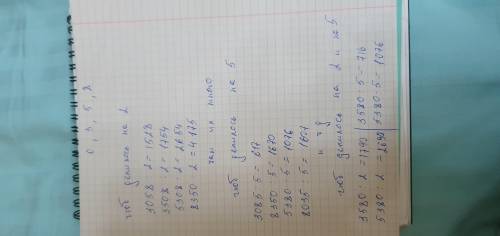 0, 3, 5, 8
чтоб делилось на 2
3058 : 2 = 1529
3508 : 2 = 1754
5308 : 2 = 2654
8350 : 2 = 4175
там их много
чтоб делилось на 5
3085 : 5 = 617
8350 : 5 = 1670
5380 : 5 = 1076
8035 : 5 = 1607
и т д
чтоб делилось на 2 и на 5
3580 : 2 = 1790 | 3580 : 5 = 716
5380 : 2 = 2690 | 5380 : 5 = 1076